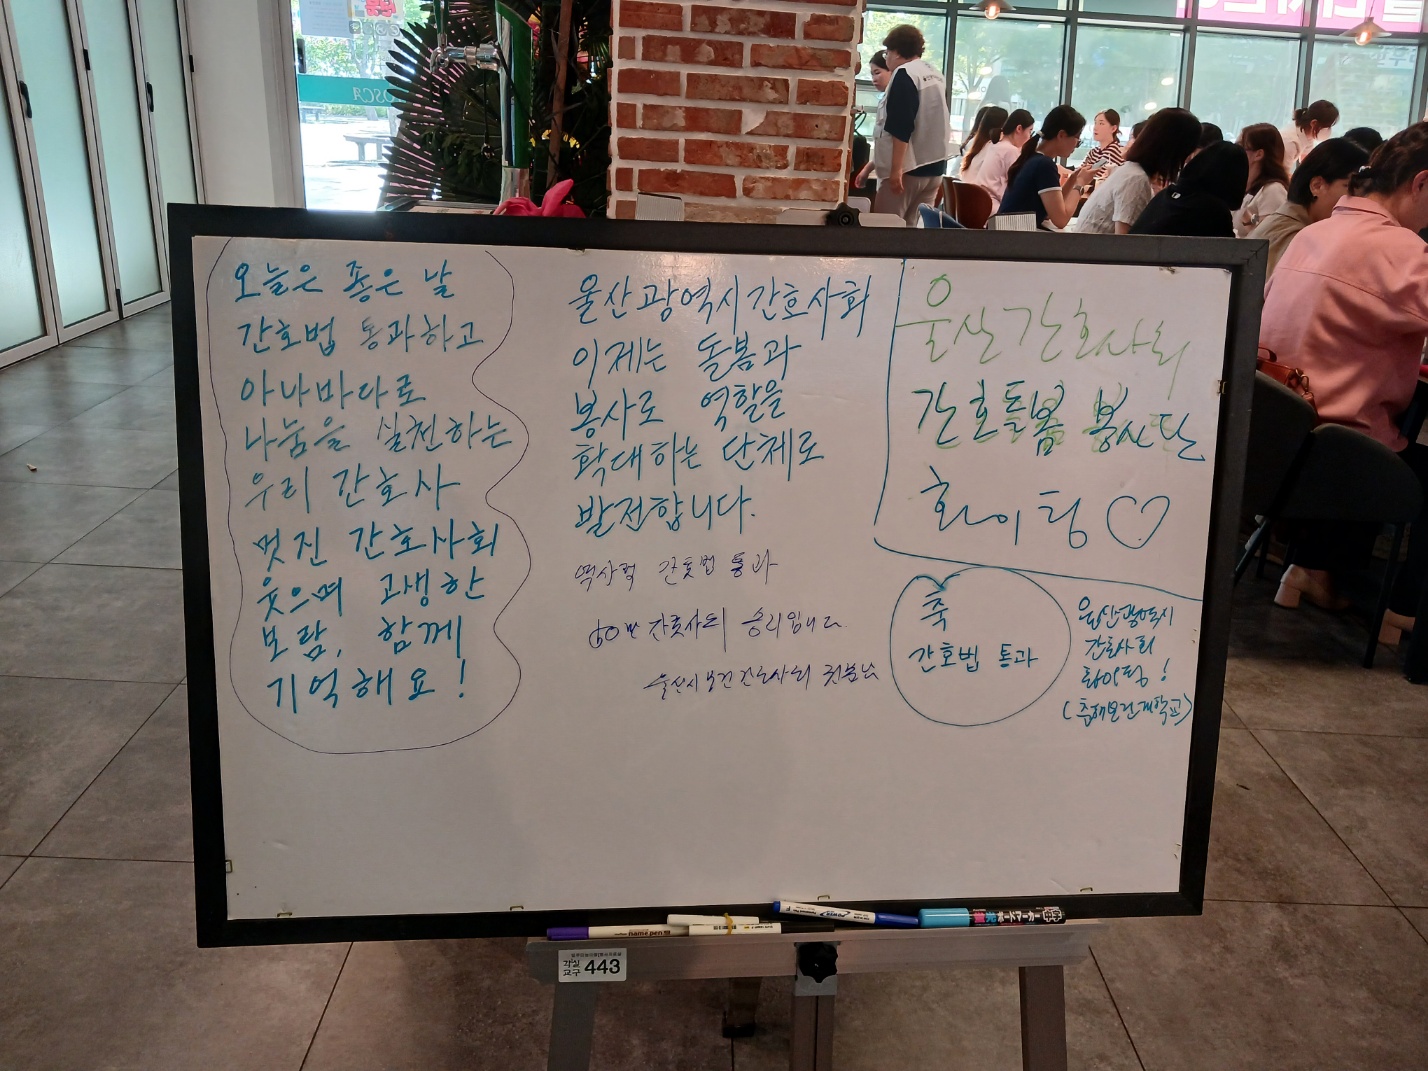 오늘은 좋은 날
간호법 통과하고
아나바다로
나눔을 실천하는
우리 간호사
멋진 간호사회
웃으며 고생한
보람, 함께
기억해요!
울산광역시간호사회
이제는 돌봄과
봉사로 역할을
확대하는 단체로
발전합니다.
역사적 간호법 통과
60만 간호사의 승리입니다
울산시 보건간호사회
울산간호사회
간호돌봄 봉사단
화이팅♡
축
간호법 통과
울산광역시
간호사회
화이팅!
(춘해보건대학교)
name pen
ボードマーカー
각실
교구 443